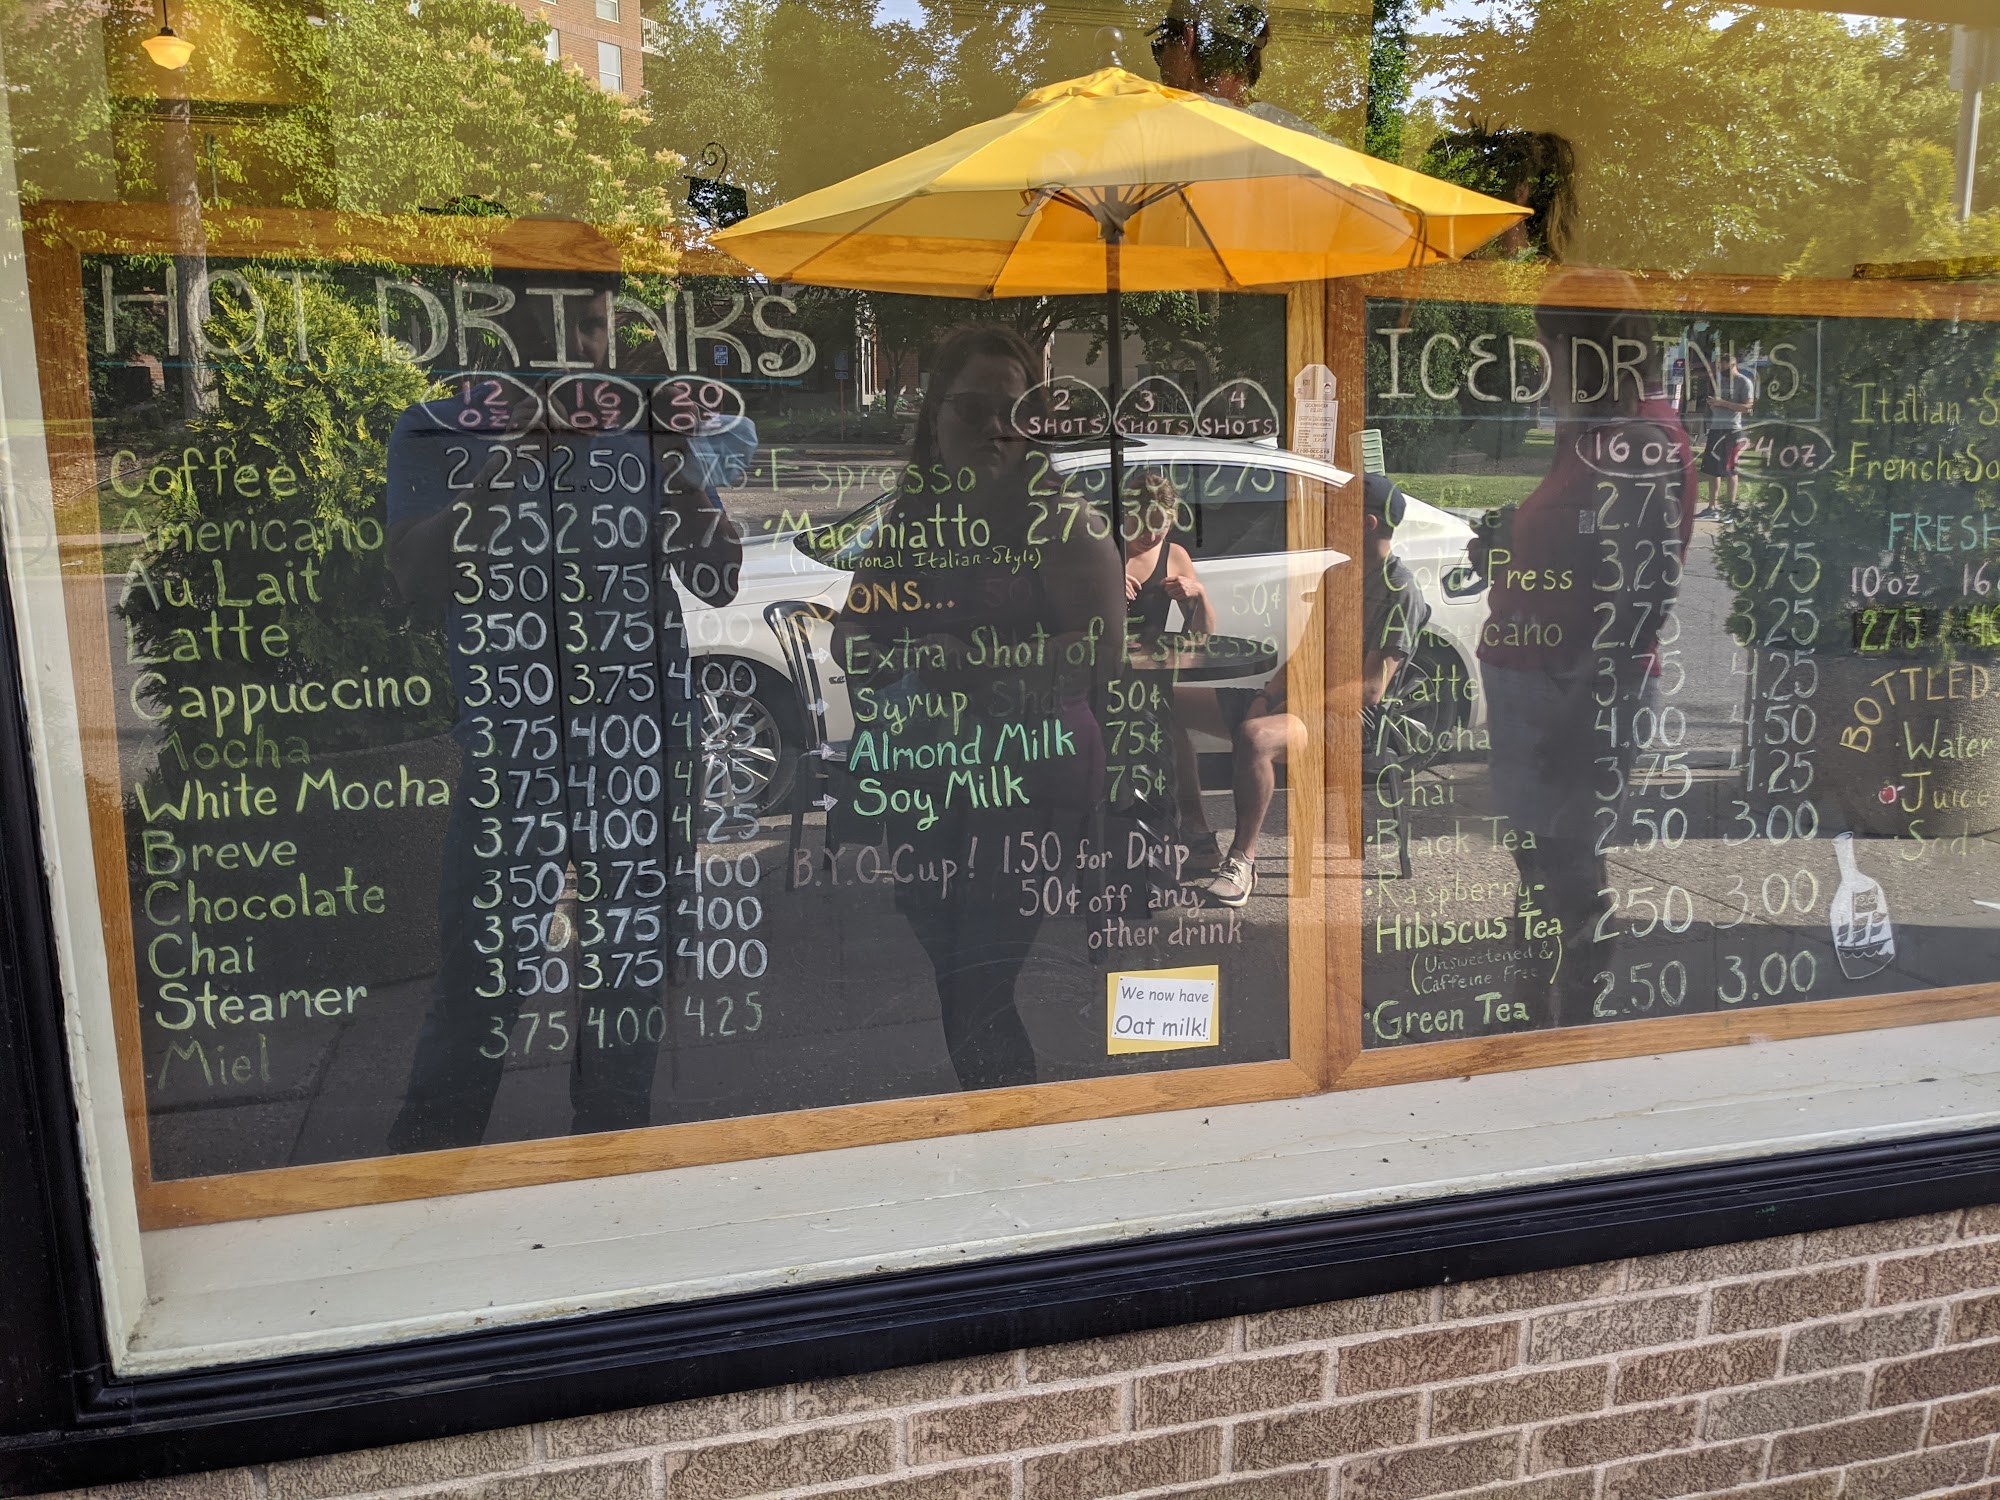 HOT DRINKS
12 OZ. 16 OZ 20 OZ
Coffee 2.25 2.50 2.75
Americano 2.25 2.50 2.75
Au Lait 3.50 3.75 4.00
Latte 3.50 3.75 4.00
Cappuccino 3.50 3.75 4.00
Mocha 3.75 4.00 4.25
White Mocha 3.75 4.00 4.25
Breve 3.75 4.00 4.25
Chocolate 3.50 3.75 4.00
Chai 3.50 3.75 4.00
Steamer 3.50 3.75 4.00
Miel 3.75 4.00 4.25
2 SHOTS 3 SHOTS 4 SHOTS
Espresso 2.25 2.50 2.75
Macchiatto 2.75 3.00
(Traditional Italian-Style)
Extra Shot of Espresso 50¢
Syrup 50¢
Almond Milk 75¢
Soy Milk 75¢
B.Y.O.Cup! 1.50 for Drip
50¢ off any
other drink
We now have
Oat milk!
ICED DRINKS
16 OZ 24 OZ
Coffee 2.75 3.25
Cold Press 3.25 3.75
Americano 2.75 3.25
Latte 3.75 4.25
Mocha 4.00 4.50
Chai 3.75 4.25
Black Tea 2.50 3.00
Raspberry-
Hibiscus Tea 2.50 3.00
(Unsweetened &
Caffeine Free)
Green Tea 2.50 3.00
Italian S
French So
FRESH
10 oz 16
2.75
BOTTLED
Water
Juice
Soda